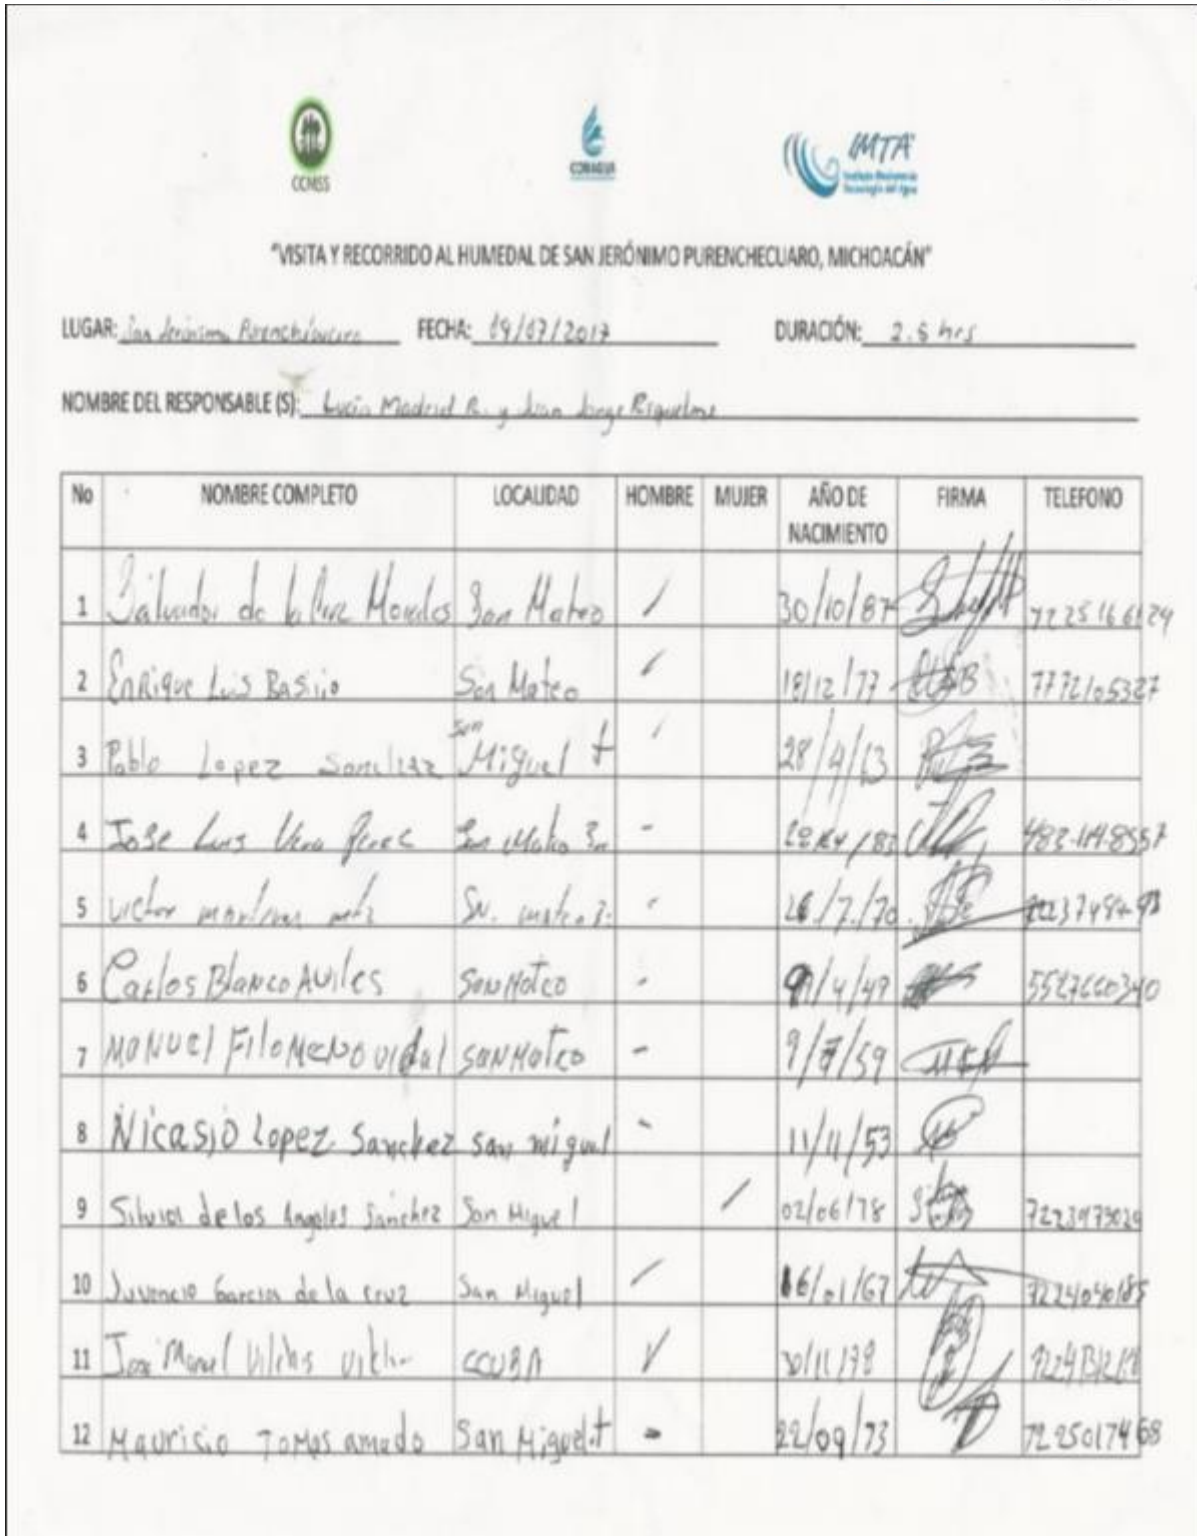 CCMSS
CONAGUA
IMTA
Instituto Mexicano de
Tecnología del Agua
"VISITA Y RECORRIDO AL HUMEDAL DE SAN JERÓNIMO PURENCHECUARO, MICHOACÁN"
LUGAR: San Jerónimo Purenchécuaro FECHA: 19/07/2017 DURACIÓN: 2.5 hrs
NOMBRE DEL RESPONSABLE (S): Lucía Madrid R. y Juan Jorge Riquelme
No NOMBRE COMPLETO LOCALIDAD HOMBRE MUJER AÑO DE NACIMIENTO FIRMA TELEFONO
1 Salvador de la Morales San Mateo / 30/10/87
2 Enrique Luis Basilio San Mateo / 18/12/77 7772105327
3 Pablo Lopez Sanchez San Miguel t / 28/4/63
4 Jose Luis Vera Perez San Mateo -
5 Victor martinez Sn. mateo 26/7/70
6 Carlos Blanco Aviles San Mateo - /4/49
7 MANUEl FiloMeNO vidal SAN Mateo - 9/7/59
8 Nicasio Lopez Sanchez San miguel - 11/11/53
9 Silvia de los Angeles Sanchez San Miguel / 02/06/78
10 Juvencio Garcia de la cruz San Miguel / 16/01/67
11 Jose Manuel Vilchis CCUBA 30/11/78
12 Mauricio Tomas amado San Miguel.t - 22/09/73 7225017468